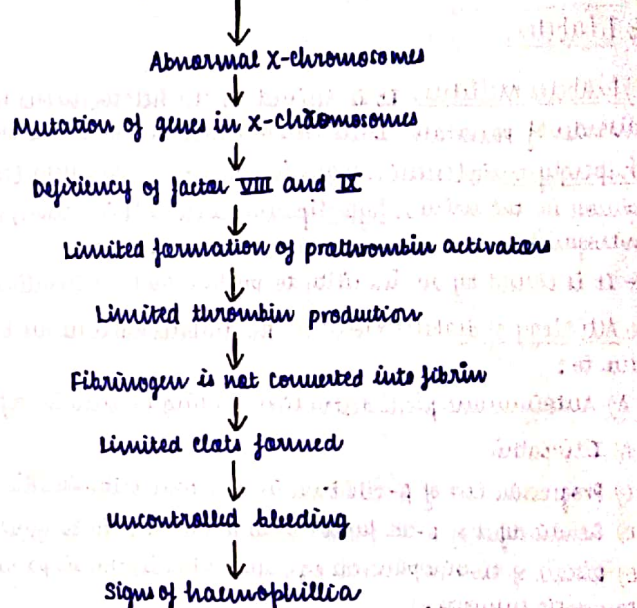 Abnormal X-chromosomes
Mutation of genes in X-chromosomes
Deficiency of factor VIII and IX
Limited formation of prothrombin activators
Limited thrombin production
Fibrinogen is not converted into fibrin
Limited clots formed
uncontrolled bleeding
Signs of haemophillia